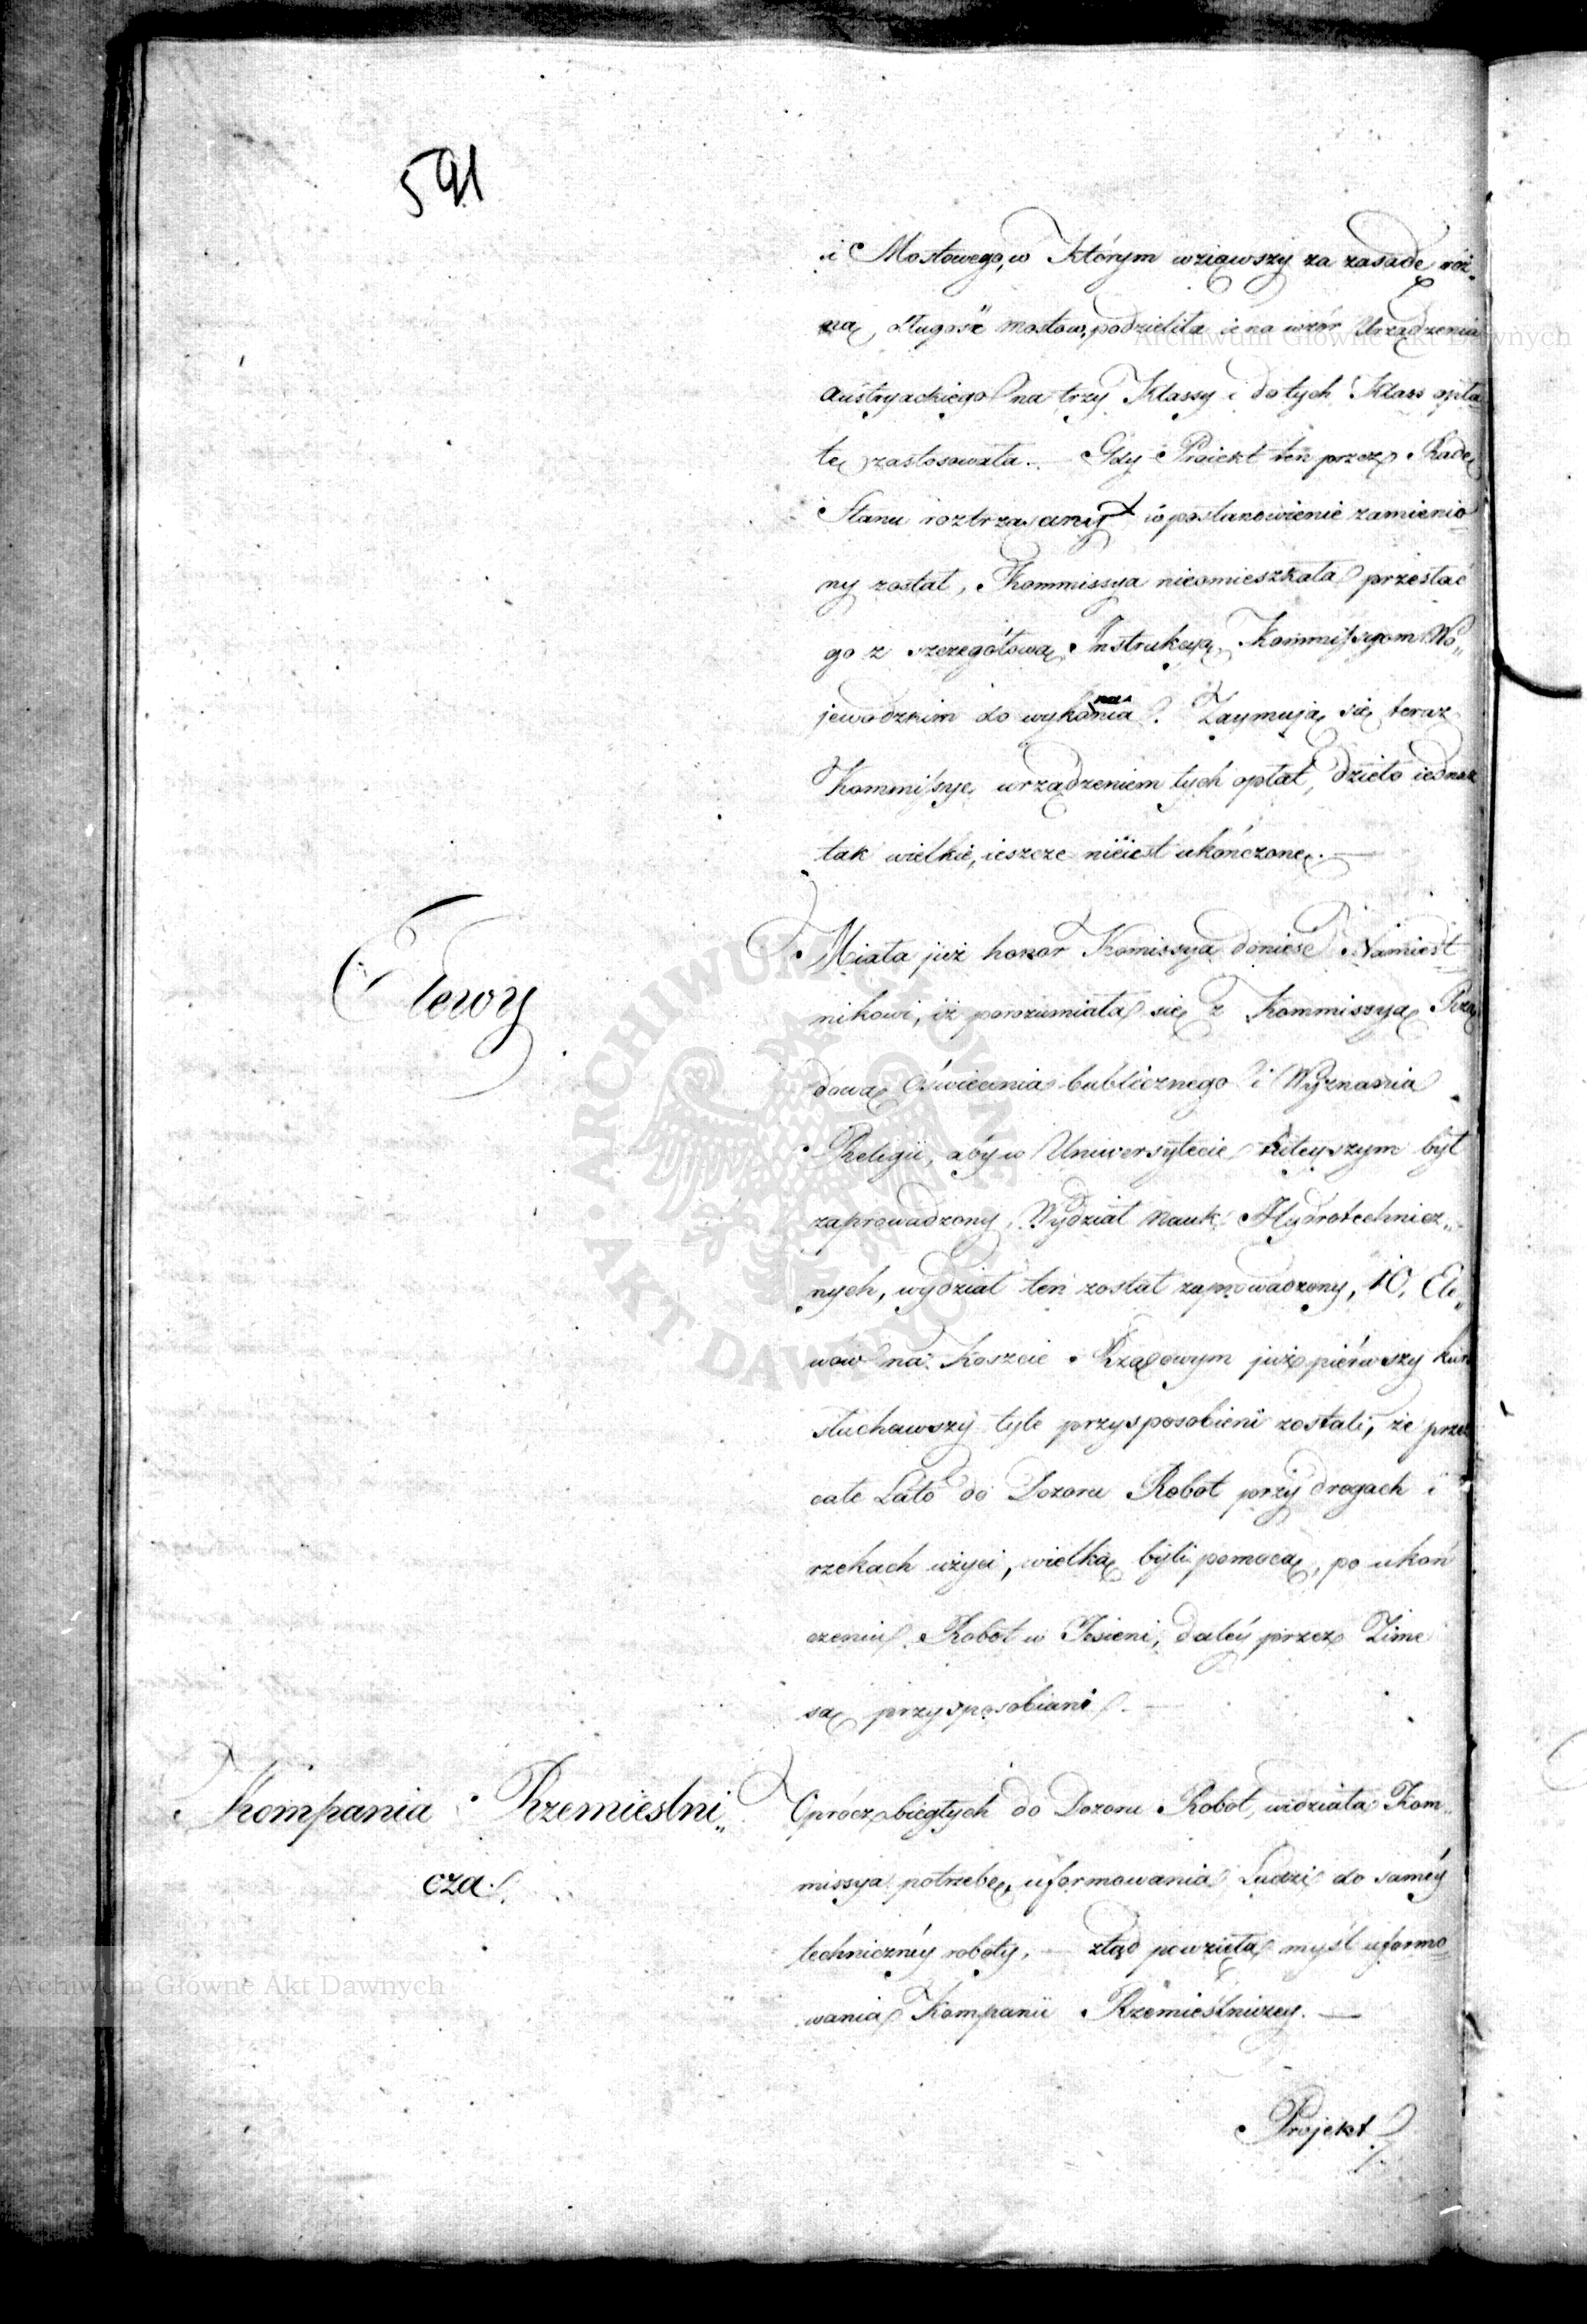 591
i Mostowego, w którym wziąwszy za zasadę róż-
ną długość mostow, podzieliła ie na wzór Urządzenia
Austryackiego na trzy Klassy i do tych Klass opła
tę zastosowała. — Gdy Proiekt ten przez Radę
Stanu roztrząsany w postanowienie zamienio
ny został, Kommissya nieomieszkała przesłać
go z szczegółową Instrukcyą Kommissyom Wo„
jewodzkim do wykonania. Zaymują się teraz
Kommissye urządzeniem tych opłat, dzieło iednak
tak wielkie, ieszcze nieiest ukończone. —
Elewy
Miała już honor Komissya donieść Namiest
nikowi, iż porozumiała się z Kommiszyą Rzą
dową Oświecenia Publicznego i Wyznania
Religii, aby w Uniwersytecie tuteyszym był
zaprowadzony Wydział Nauk Hydrotechnicz„
nych, wydział ten został zaprowadzony, 10. Ele„
wow na Koszcie Rządowym już pierwszy kurs
słuchawszy tyle przysposobieni zostali, że przez
całe Lato do Dozoru Robot przy drogach i
rzekach użyci, wielką byli pomocą, po ukoń
czeniu Robot w Jesieni, daléy przez Zime
są przysposobiani. —
Kompania Rzemieslni„
cza.
Oprócz biegłych do Dozoru Robot, widziała Kom„
missya potrzebę uformowania Ludzi do saméy
technicznéy roboty, — ztąd powzięta myśl uformo
wania Kompanii Rzemieślniczey. —
Projekt
Archiwum Główne Akt Dawnych
Archiwum Główne Akt Dawnych
ARCHIWUM GŁÓWNE AKT DAWNYCH